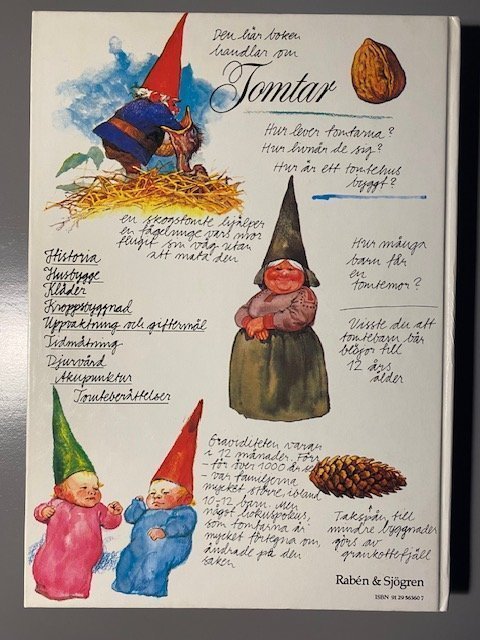 Den här boken
handlar om
Tomtar
Hur lever tomtarna?
Hur livnär de sig?
Hur är ett tomtehus
byggt?
en skogstomte hjälper
en fågelunge vars mor
flugit sin väg utan
att mata den
Historia
Husbygge
Kläder
Kroppsbyggnad
Uppvaktning och giftermål
Tidmätning
Djurvård
Akupunktur
Tomteberättelser
Hur många
barn får
en
tomtemor?
Visste du att
tomtebarn bär
blöjor till
12 års
ålder
Graviditeten varar
i 12 månader. Förr
- för över 1000 år se
- var familjerna
mycket större, ibland
10-12 barn. Men
något hokuspokus,
som tomtarna är
mycket förtegna om,
ändrade på den
saken
Takspån till
mindre byggnader
görs av
grankottefjäll
Rabén & Sjögren
ISBN 91 29 56360 7